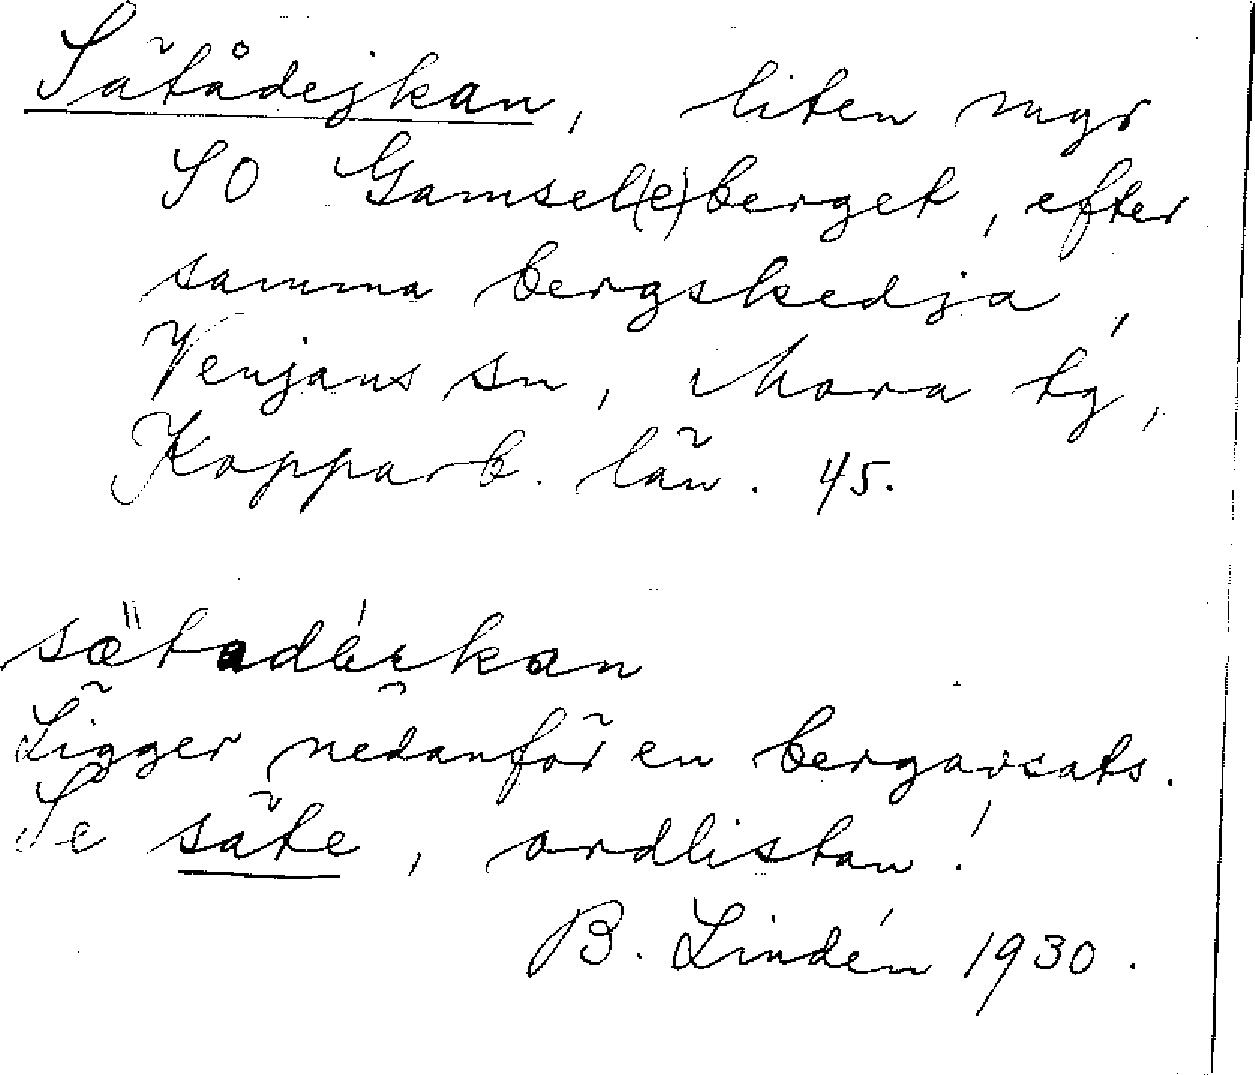 Sätådejkan, liten myr
SO Gamsel(e)berget, efter
samma bergskedja,
Venjans sn, Mora tg,
Kopparb. län. 45.
Ligger nedanför en bergavsats.
Se säte, ordlistan!
B. Lindén 1930.